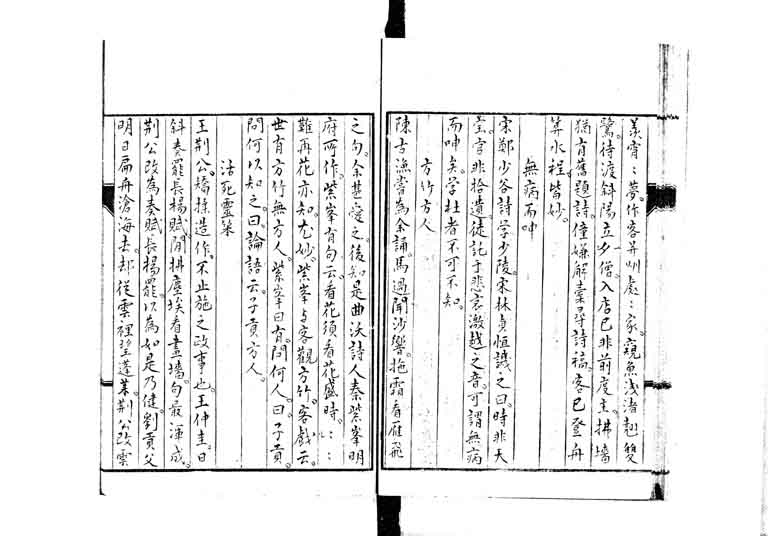 羡宵：夢。作客并州處：家。窺魚浅渚翹雙
鷺。待渡斜陽立夕僧。入店已非前度主。拂墙
猶有舊題詩。僮嫌解橐尋詩稿。客已登舟
算水程。皆妙。
無病而呻
宋鄭少谷詩学少陵。宋林貞恒譏之曰。時非天
宝。官非拾遺。徒託于悲哀激越之音。可謂無病
而呻矣。学杜者不可不知。
方竹方人
陳古漁嘗為余誦。馬過闻沙響。拖霜看雁飛
之句。余甚愛之。後知是曲沃詩人秦紫峯明
府所作。紫峯有句云。看花須看花盛時。：：
難再花亦知。尤妙。紫峯与客觀方竹。客戲云。
世有方竹無方人。紫峯曰有。問何人。曰子貢。
問何以知之。曰。論語云。子貢方人。
沽死靈柒
王荆公矯揉造作。不止施之政事也。王仲圭。日
斜奏罷長楊賦。閒拂塵埃看畫墙。句最渾成。
荆公改為奏賦長楊罷。以為如是乃健。劉貢父
明日扁舟滄海去。却從雲裡望蓬莱。荆公改雲